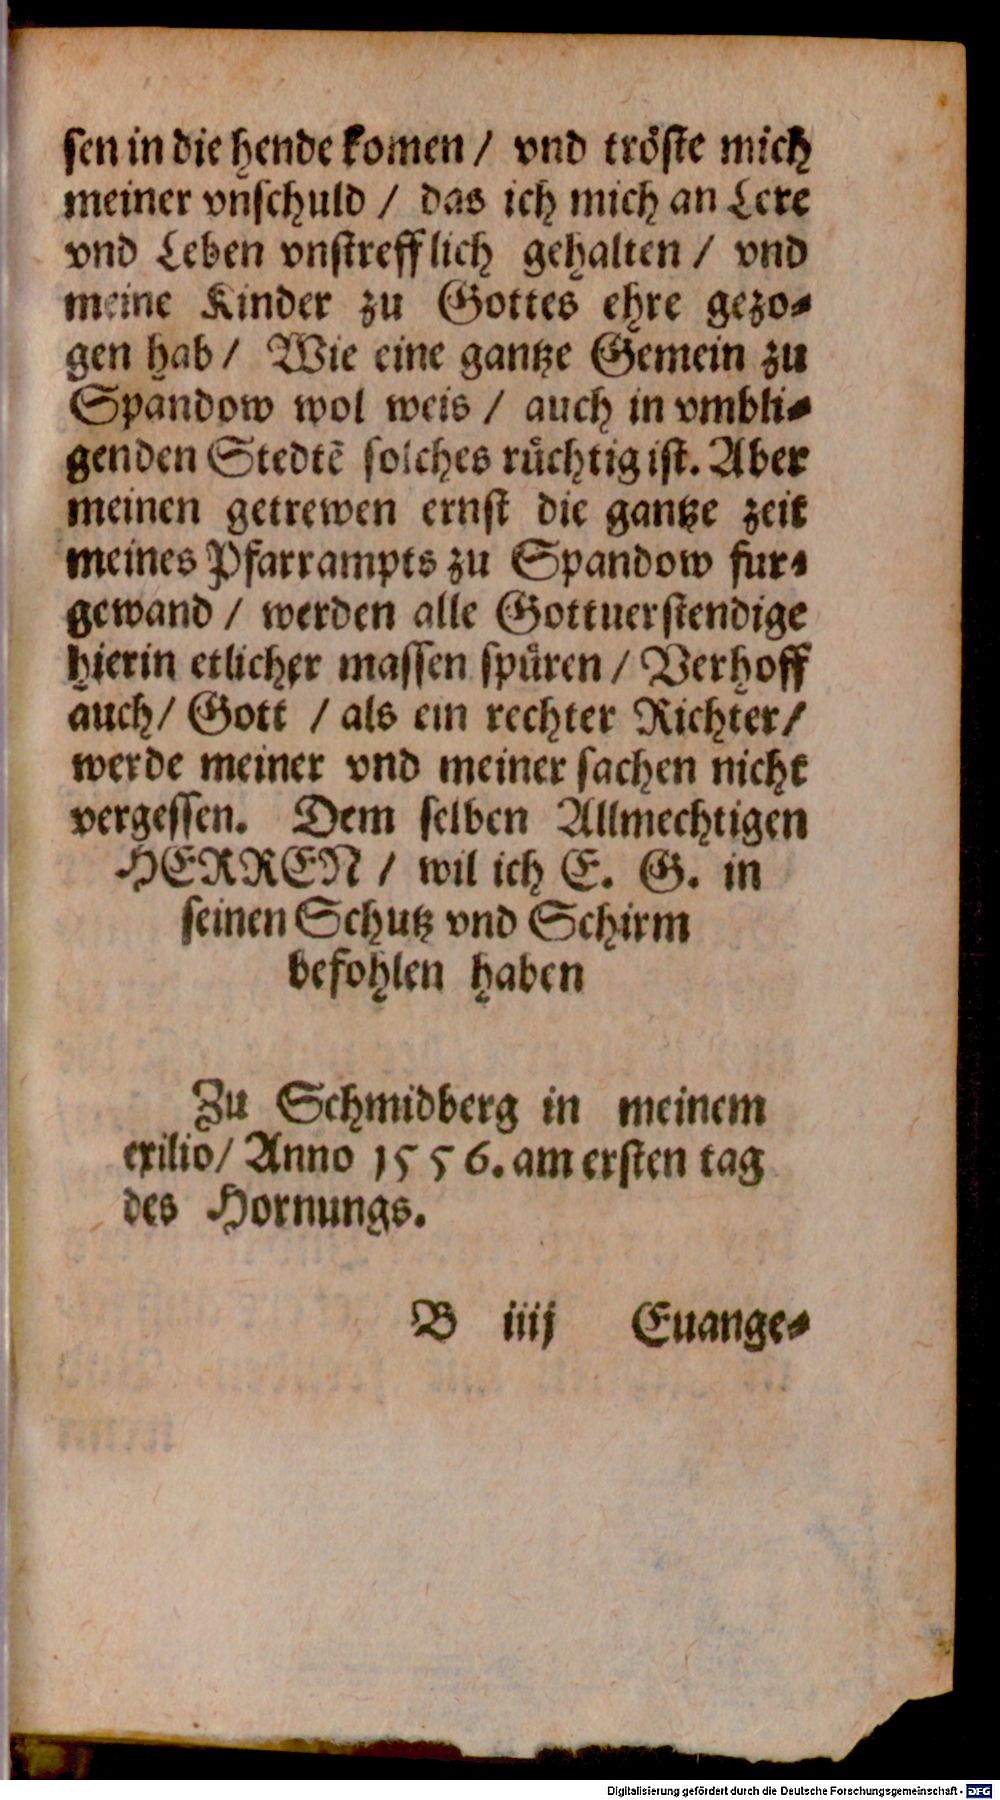 sen in die hende komen / vnd tröste mich
meiner vnschuld / das ich mich an Lere
vnd Leben vnstrefflich gehalten / vnd
meine Kinder zu Gottes ehre gezo-
gen hab / Wie eine gantze Gemein zu
Spandow wol weis / auch in vmbli-
genden Stedtē solches rüchtig ist. Aber
meinen getrewen ernst die gantze zeit
meines Pfarrampts zu Spandow fur-
gewand / werden alle Gottuerstendige
hierin etlicher massen spüren / Verhoff
auch / Gott / als ein rechter Richter /
werde meiner vnd meiner sachen nicht
vergessen. Dem selben Allmechtigen
HERREN / wil ich E. G. in
seinen Schutz vnd Schirm
befohlen haben
Zu Schmidberg in meinem
exilio / Anno 1556. am ersten tag
des Hornungs.
B iiij Euange-
Digitalisierung gefördert durch die Deutsche Forschungsgemeinschaft - DFG